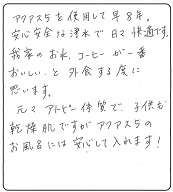 アクアス5を使用して早8年。
安心安全な浄水で日々快適です。
我家のお水、コーヒーが一番
おいしい。と外食する度に
思います。
元々アトピー体質で、子供も
乾燥肌ですがアクアス5の
お風呂には安心して入れます!